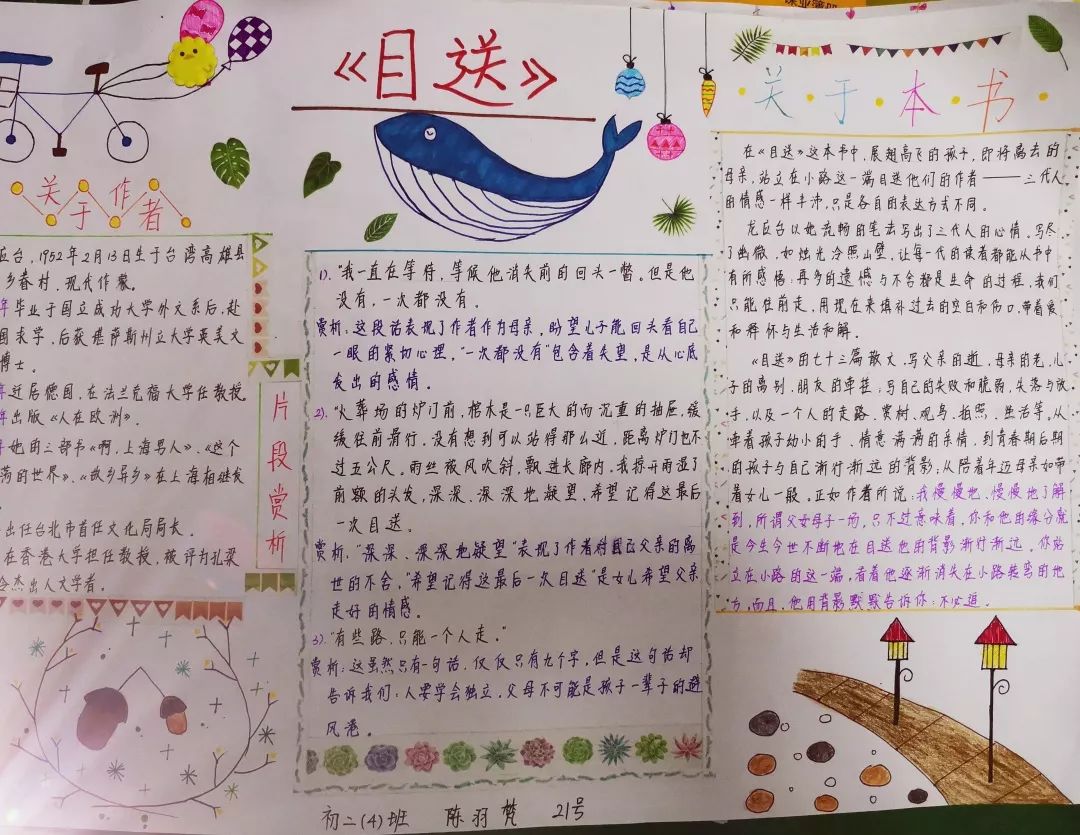 《目送》
关于作者
应台，1952年2月13日生于台湾高雄县
乡眷村，现代作家。
年毕业于国立成功大学外文系后，赴
国求学，后获堪萨斯州立大学英美文
博士。
年迁居德国，在法兰克福大学任教授。
年出版《人在欧洲》。
她的三部书《啊，上海男人》、《这个
荡的世界》、《故乡异乡》在上海相继发
出任台北市首任文化局局长。
在香港大学担任教授，被评为孔梁
会杰出人文学者。
片段赏析
1)."我一直在等待，等候他消失前的回头一瞥。但是他
没有，一次都没有。
赏析：这段话表现了作者作为母亲，盼望儿子能回头看自己
一眼的紧切心理，"一次都没有"包含着失望，是从心底
发出的感情。
2)."火葬场的炉门前，棺木是一只巨大的而沉重的抽屉，缓
缓往前滑行，没有想到可以站得那么近，距离炉门也不
过五公尺。雨丝被风吹斜，飘进长廊内，我掠开雨湿了
前额的头发，深深、深深地凝望，希望记得这最后
一次目送。
赏析："深深、深深地凝望"表现了作者对自己父亲的离
世的不舍，"希望记得这最后一次目送"是女儿希望父亲
走好的情感。
3)."有些路，只能一个人走。"
赏析：这虽然只有一句话，仅仅只有九个字，但是这句话却
告诉我们：人要学会独立，父母不可能是孩子一辈子的避
风港。
关·于·本·书
在《目送》这本书中，展翅高飞的孩子，即将离去的
母亲，站立在小路这一端目送他们的作者——三代人
的情感一样丰沛，只是各自的表达方式不同。
龙应台以她流畅的笔去写出了三代人的心情。写尽
了幽微，如烛光冷照山壁，让每一代的读者都能从书中
有所感悟：再多的遗憾与不舍都是生命的过程，我们
只能往前走，用现在来填补过去的空白和伤口，带着爱
和释怀与生活和解。
《目送》的七十三篇散文，写父亲的逝、母亲的老、儿
子的离别、朋友的牵挂；写自己的失败和脆弱、失落与放
手，以及一个人的走路、赏树、观鸟、拍照、生活等，从
牵着孩子幼小的手、情意满满的亲情，到青春期后期
的孩子与自己渐行渐远的背影；从陪着年迈母亲如带
着女儿一般。正如作者所说：我慢慢地、慢慢地了解
到，所谓父女母子一场，只不过意味着，你和他的缘分就
是今生今世不断地在目送他的背影渐行渐远。你站
立在小路的这一端，看着他逐渐消失在小路转弯的地
方，而且，他用背影默默告诉你：不必追。
初二(4)班 陈羽梵 21号